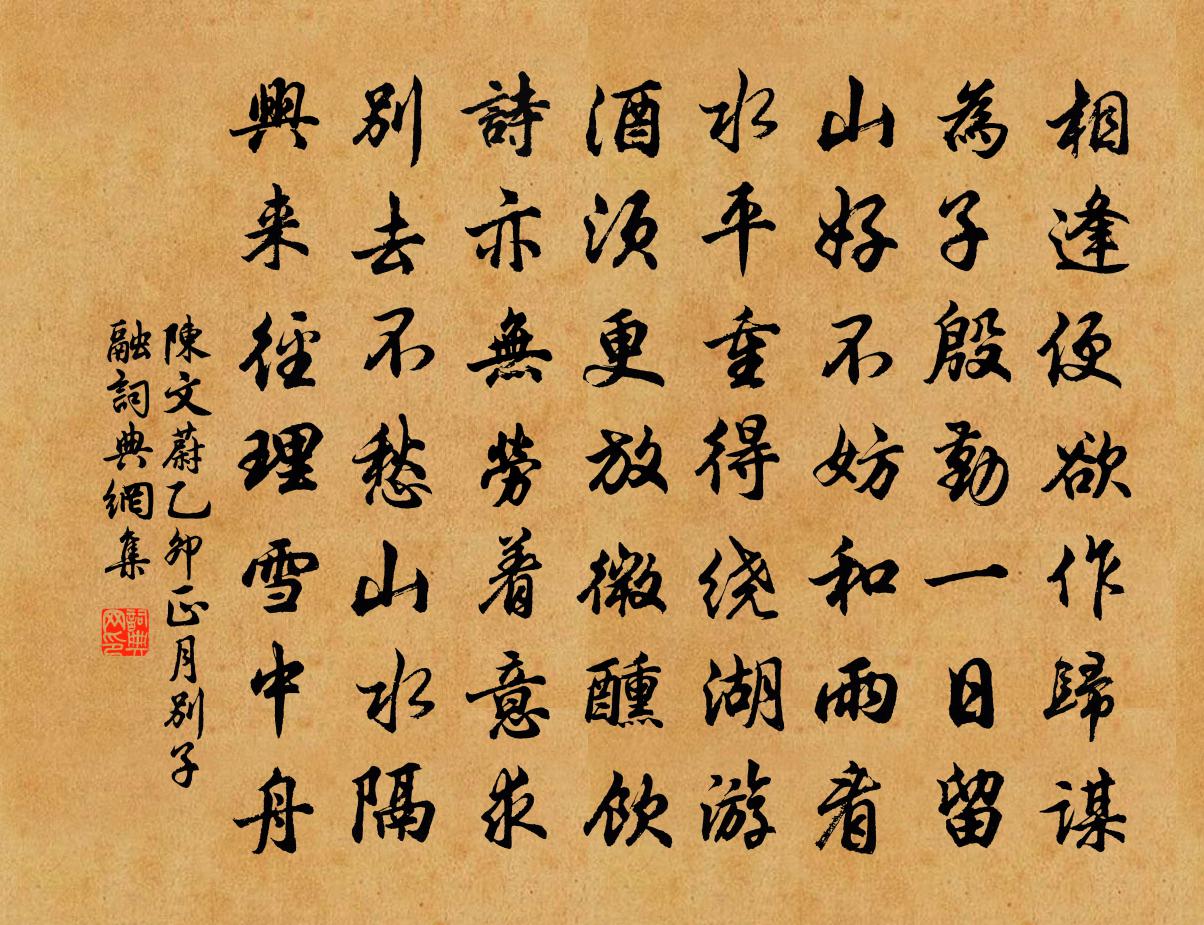 相逢便欲作歸謀
為子殷勤一日留
山好不妨和雨看
水平重得绕湖游
酒須更放微醺飲
詩亦無勞着意求
別去不愁山水隔
興来徑理雪中舟
陳文蔚乙卯正月別子
融詞典網集
詞典
网印